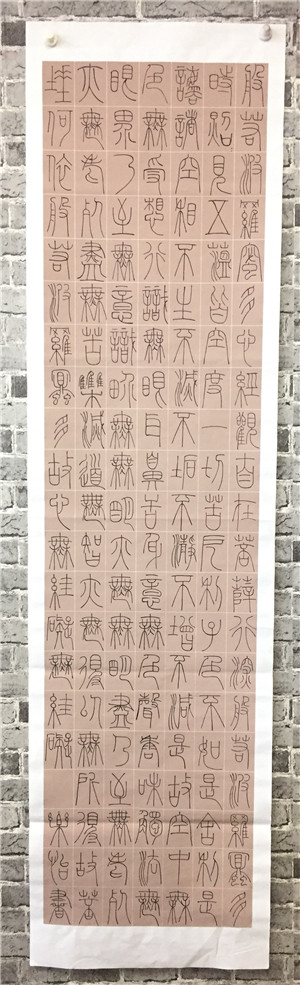 般若波羅蜜多心經觀自在菩薩行深般若波羅蜜多
時照見五蘊皆空度一切苦厄利子色不如是舍利是
諸空相不生不滅不垢不淨不增不減是故空中無
色無受想行識無眼耳鼻舌身意無色聲香味觸法無
眼界乃至無意識界無無明亦無無明盡乃至無老死
亦無老死盡無苦集滅道無智亦無得以無所得故菩
埵何依般若波羅蜜多故心無絓礙無絓礙
樂怡書